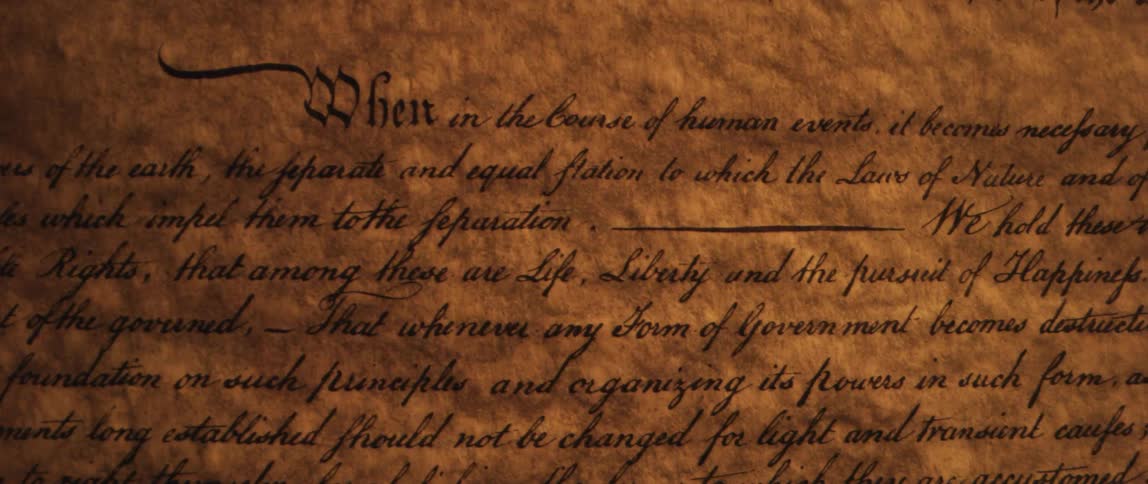 When in the Course of human events. it becomes neceſsary
ers of the earth, the ſeparate and equal ſtation to which the Laws of Nature and of
es which impel them to the ſeparation. We hold these
Rights, that among these are Life, Liberty and the pursuit of Happineſs
t of the governed, — That whenever any Form of Government becomes destructi
foundation on such principles and organizing its powers in such form, a
ments long established ſhould not be changed for light and transient cauſes
to right which they are accustomed